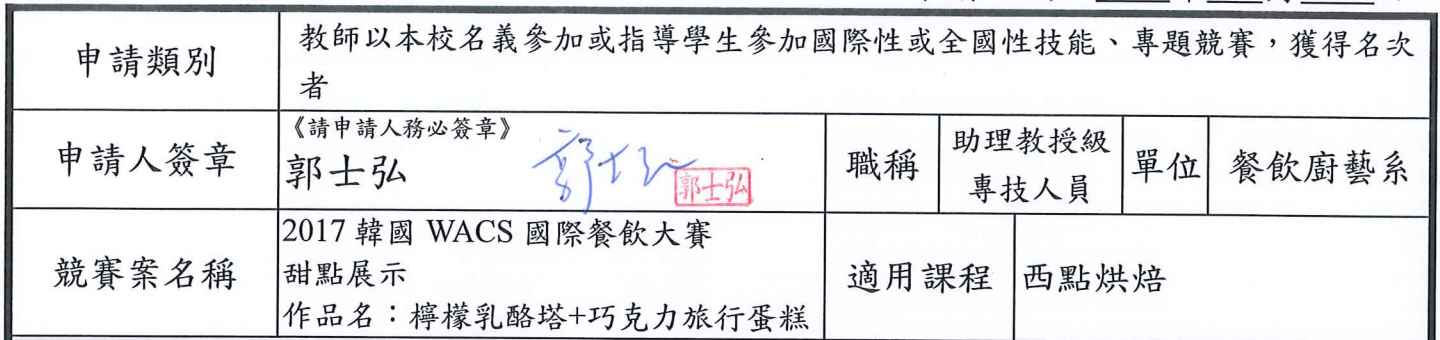 申請類別
教師以本校名義參加或指導學生參加國際性或全國性技能、專題競賽，獲得名次
者
申請人簽章
《請申請人務必簽章》
郭士弘
郭士弘
郭士弘
職稱
助理教授級
專技人員
單位
餐飲廚藝系
競賽案名稱
2017 韓國 WACS 國際餐飲大賽
甜點展示
作品名：檸檬乳酪塔+巧克力旅行蛋糕
適用課程
西點烘焙